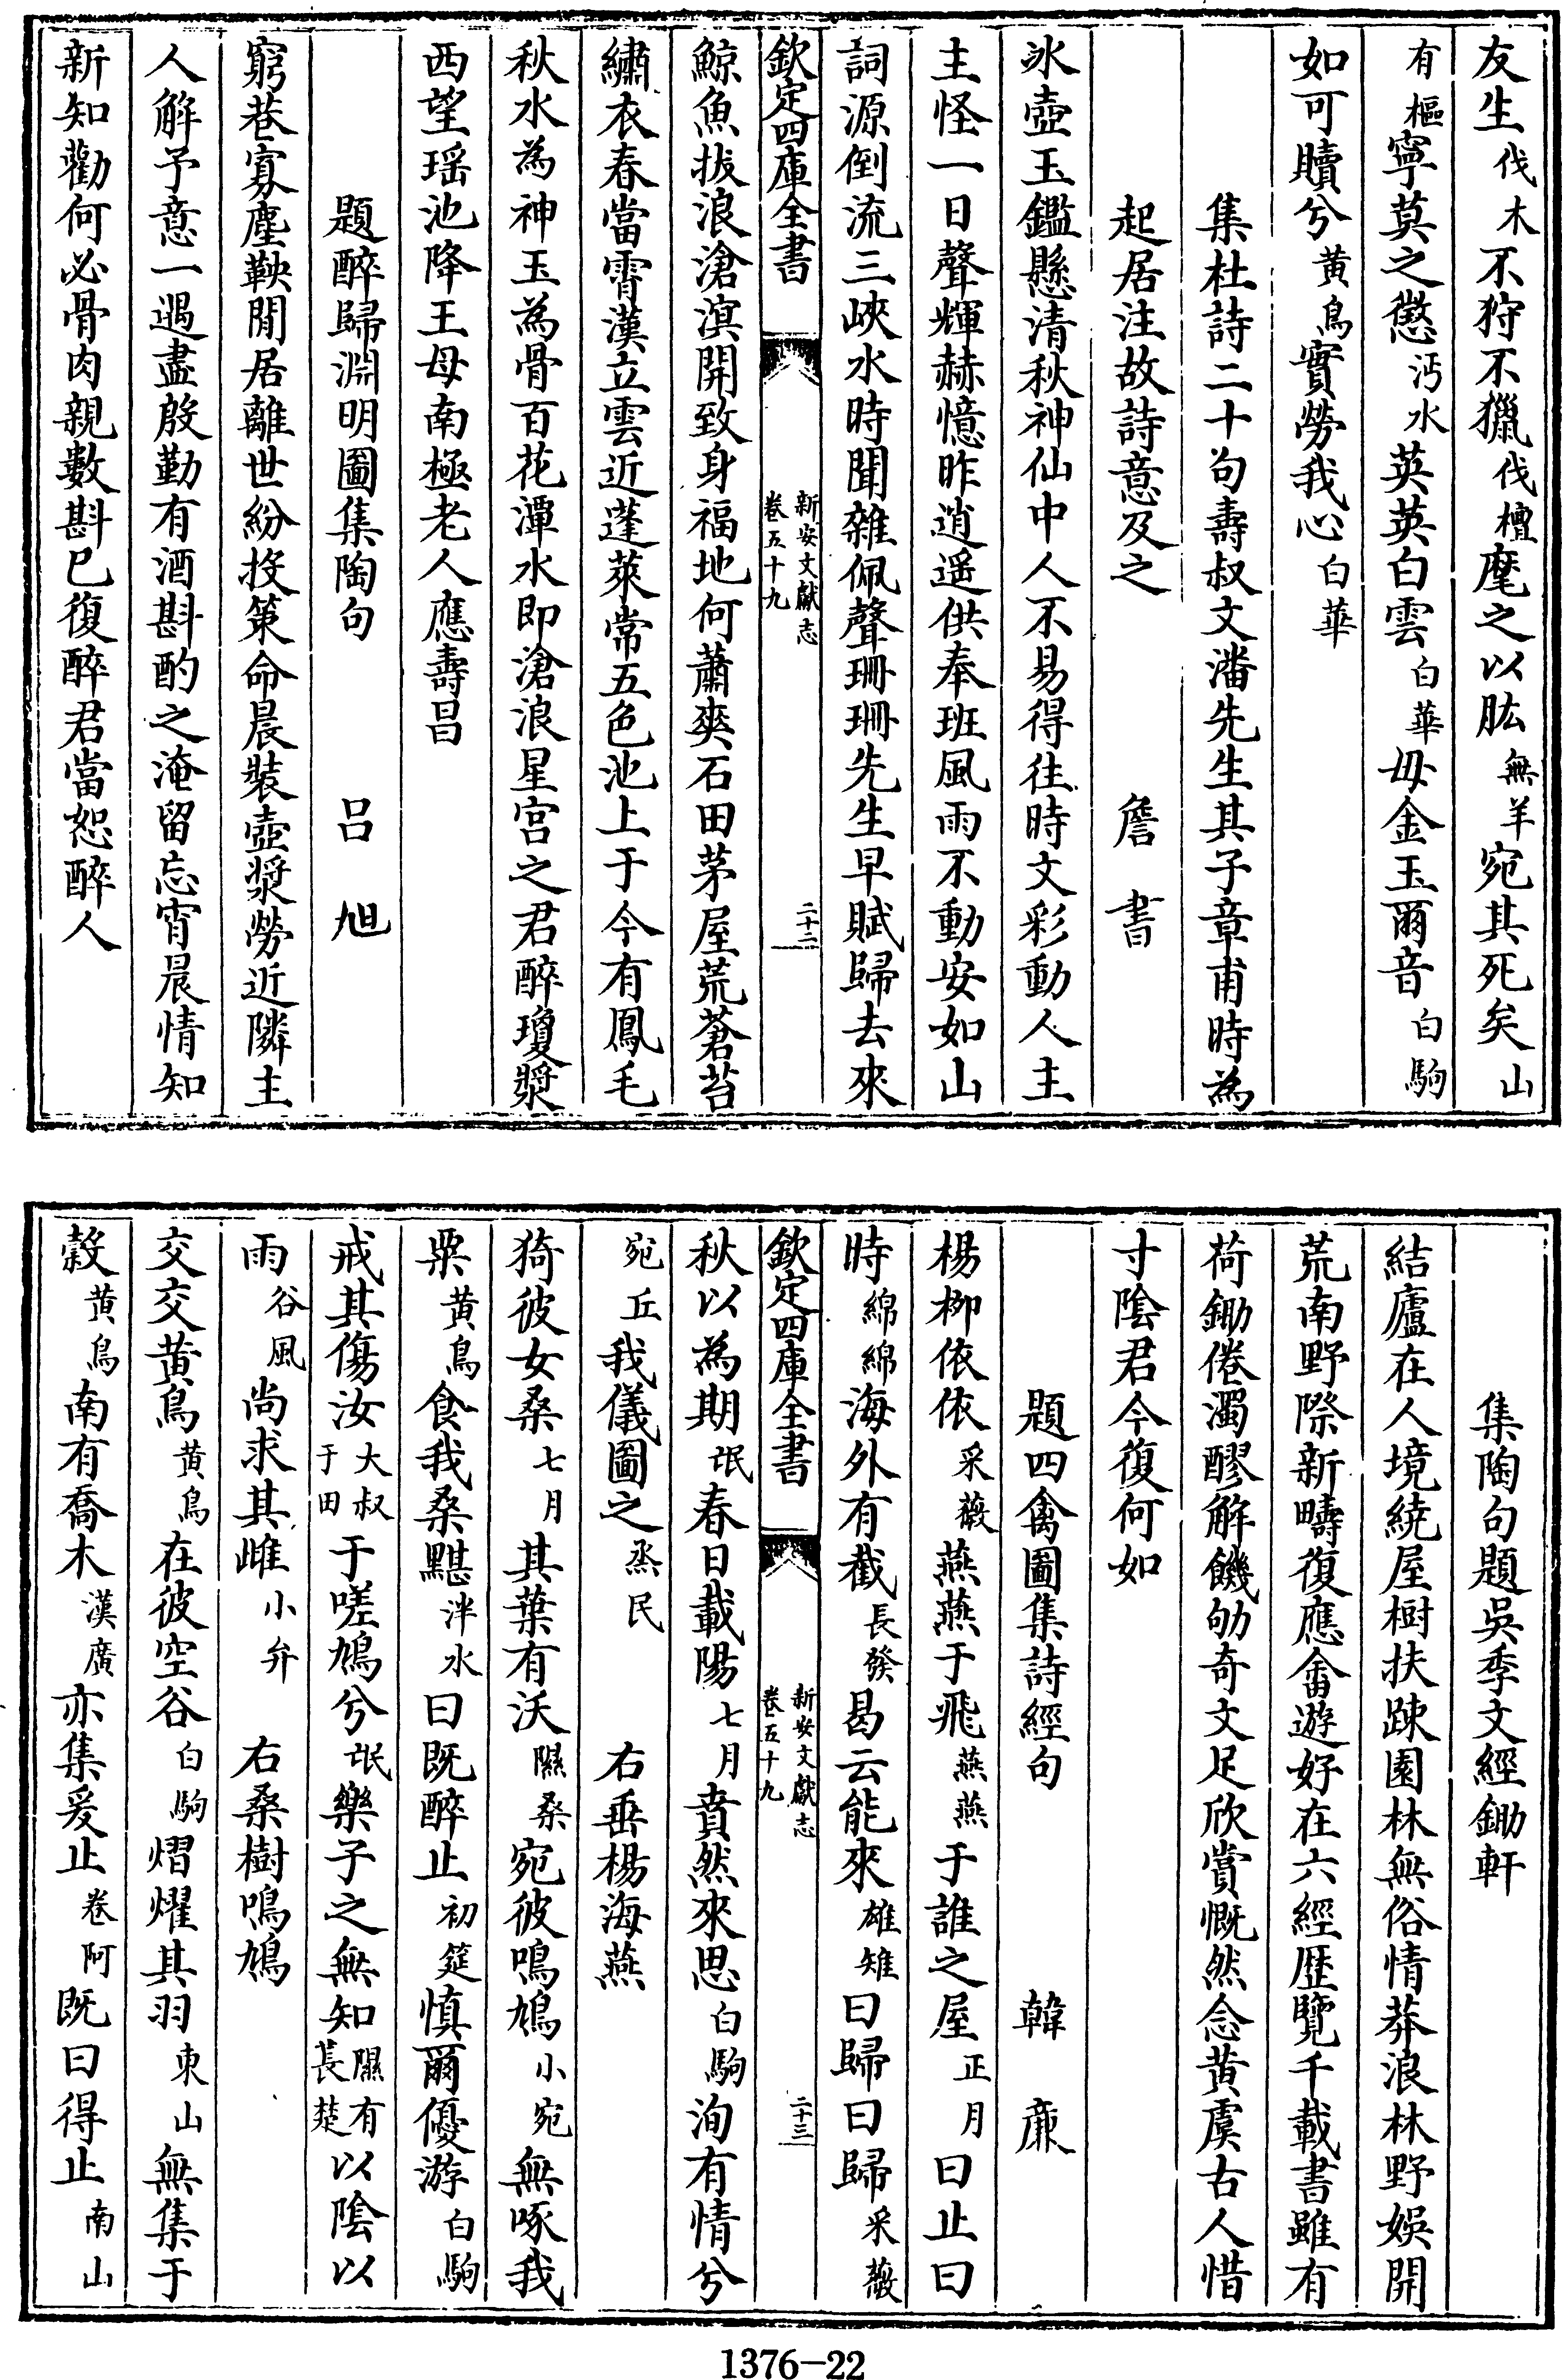 友生伐木不狩不獵伐檀麾之以肱無羊宛其死矣山
有樞寧莫之懲沔水英英白雲白華毋金玉爾音白駒
如可贖兮黄鳥實勞我心白華
集杜詩二十句壽叔文潘先生其子章甫時為
起居注故詩意及之　詹書
氷壺玉鑑懸清秋神仙中人不易得往時文彩動人主
主怪一日聲輝赫憶昨逍遥供奉班風雨不動安如山
詞源倒流三峽水時聞雜佩聲珊珊先生早賦歸去來
欽定四庫全書　新安文獻志卷五十九　二十二
鯨魚拔浪滄溟開致身福地何蕭爽石田茅屋荒蒼苔
繡衣春當霄漢立雲近蓬萊常五色池上于今有鳳毛
秋水為神玉為骨百花潭水即滄浪星宫之君醉瓊漿
西望瑶池降王母南極老人應壽昌
題醉歸淵明圖集陶句　吕旭
窮巷寡塵鞅閒居離世紛投策命晨裝壺漿勞近隣主
人解予意一遇盡殷勤有酒斟酌之淹留忘宵晨情知
新知勸何必骨肉親數斟已復醉君當恕醉人
集陶句題吳季文經鋤軒
結廬在人境繞屋樹扶踈園林無俗情莽浪林野娛開
荒南野際新疇復應畬遊好在六經歷覽千載書雖有
荷鋤倦濁醪解饑劬奇文足欣賞慨然念黄虞古人惜
寸陰君今復何如
題四禽圖集詩經句　韓廉
楊柳依依采薇燕燕于飛燕燕于誰之屋正月曰止曰
時綿綿海外有截長發曷云能來雄雉曰歸曰歸采薇
欽定四庫全書　新安文獻志卷五十九　二十三
秋以為期氓春日載陽七月賁然來思白駒洵有情兮
宛丘我儀圖之烝民　右垂楊海燕
猗彼女桑七月其葉有沃隰桑宛彼鳴鳩小宛無啄我
粟黄鳥食我桑黮泮水曰既醉止初筵慎爾優游白駒
戒其傷汝大叔于田于嗟鳩兮氓樂子之無知隰有萇楚以陰以
雨谷風尚求其雌小弁　右桑樹鳴鳩
交交黄鳥黄鳥在彼空谷白駒熠燿其羽東山無集于
穀黄鳥南有喬木漢廣亦集爰止卷阿既曰得止南山
1376-22